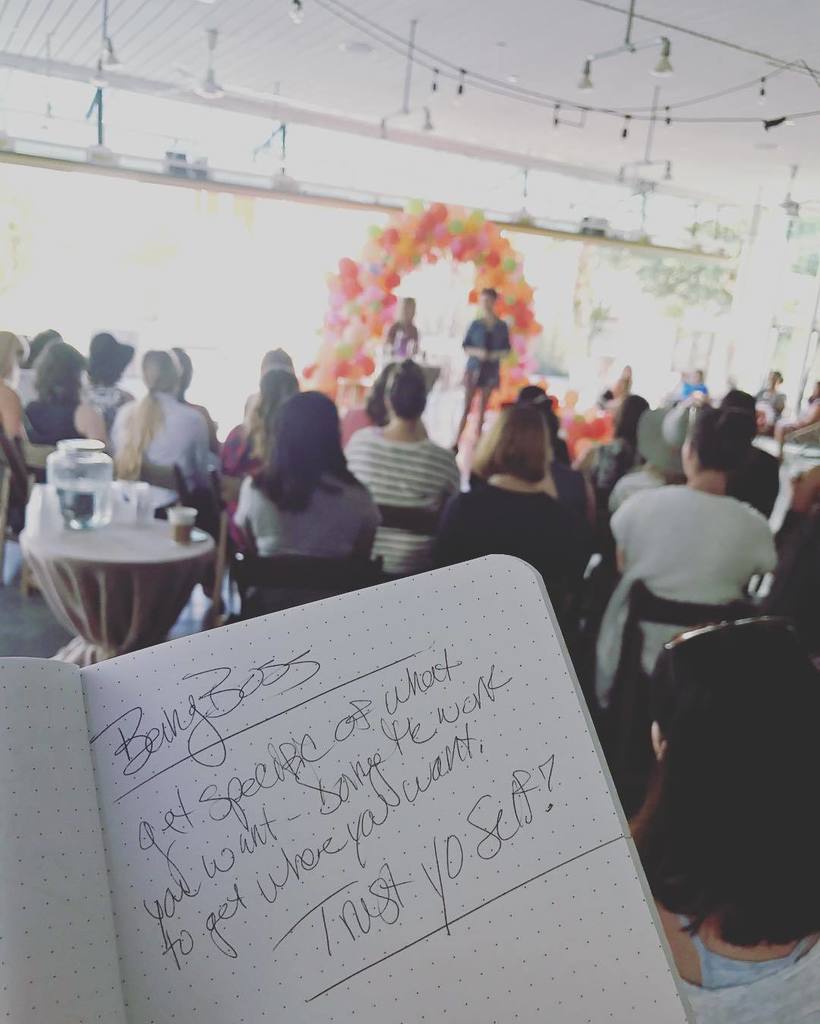 Being Boss
get specific of what
you want - Doing the work
to get where you want.
Trust yo Self!